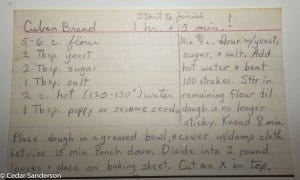 Start to finish
Cuban Bread 1 hr. + 15 min.!
5-6 c. flour
2 Tbsp. yeast
2 Tbsp. sugar
1 Tbsp. salt
2 c. hot (120-130°) water
1 Tbsp. poppy or sesame seeds
Mix 4 c. flour w/yeast,
sugar, + salt. Add
hot water + beat
100 strokes. Stir in
remaining flour til
dough is no longer
sticky. Knead 8 min.
Place dough in a greased bowl, + cover w/damp cloth.
Let rise 15 min. Punch down. Divide into 2 round
place on baking sheet. Cut an X in top,
© Cedar Sanderson